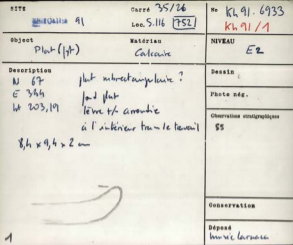 SITE
91
Carré 35/26
Lon. S.116 752
No Kh 91. 6933
Kh 91/1
Object
Plat (fgt)
Matériau
Calcaire
NIVEAU
E2
Description
N 67
E 344
plat subrectangulaire ?
fond plat
lèvre +/- arrondie
à l'intérieur
8,4 x 9,4 x 2 cm
Dessin
Photo nég.
Observations stratigraphiques
Conservation
Déposé
musée Larnaca
1